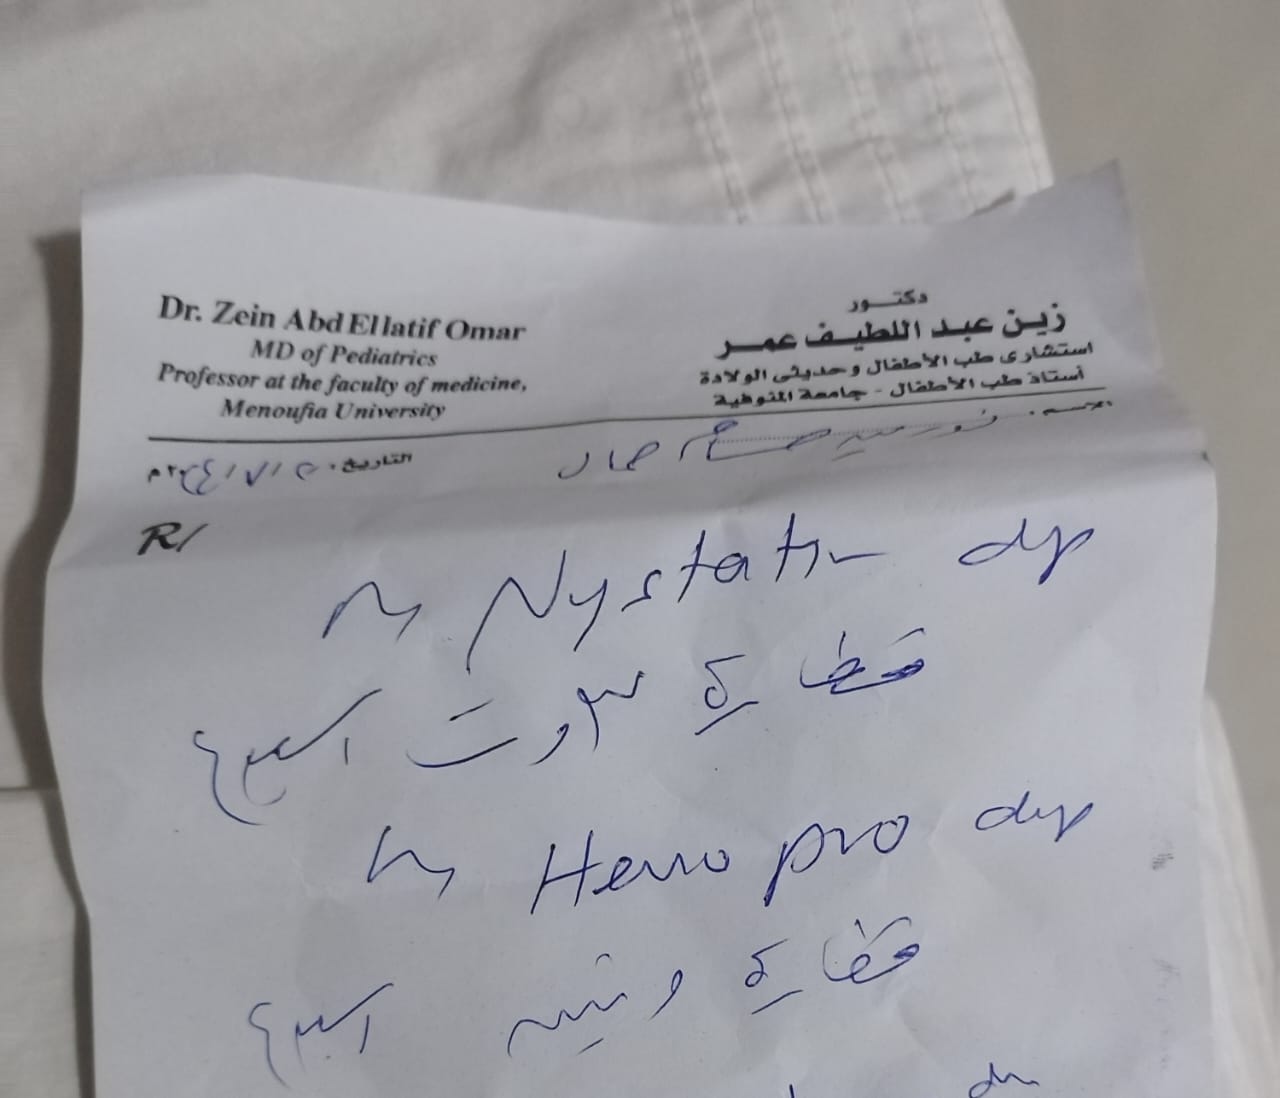 Dr. Zein Abd Ellatif Omar
MD of Pediatrics
Professor at the faculty of medicine,
Menoufia University
دكتور
زين عبد اللطيف عمر
استشارى طب الأطفال وحديثى الولادة
أستاذ طب الأطفال - جامعة المنوفية
الاسم:
التاريخ:
R/
Nystatin
قطارة ٣ مرات اسبوع
pro
قطارة اسبوع